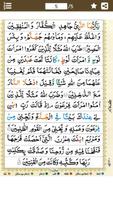 5 /5
يٰۤاَيُّهَا النَّبِيُّ جَاهِدِ الْكُفَّارَ وَالْمُنٰفِقِيْنَ
وَاغْلُظْ عَلَيْهِمْ ؕ وَمَاْوٰىهُمْ جَهَنَّمُ ؕ وَبِئْسَ
الْمَصِيْرُ ضَرَبَ اللّٰهُ مَثَلًا لِّلَّذِيْنَ كَفَرُوا
امْرَاَتَ نُوْحٍ وَّامْرَاَتَ لُوْطٍ ؕ كَانَتَا تَحْتَ
عَبْدَيْنِ مِنْ عِبَادِنَا صَالِحَيْنِ فَخَانَتٰهُمَا فَلَمْ
يُغْنِيَا عَنْهُمَا مِنَ اللّٰهِ شَيْـًٔا وَّقِيْلَ ادْخُلَا النَّارَ
مَعَ الدّٰخِلِيْنَ وَضَرَبَ اللّٰهُ مَثَلًا لِّلَّذِيْنَ
اٰمَنُوا امْرَاَتَ فِرْعَوْنَ ۘ اِذْ قَالَتْ رَبِّ ابْنِ لِيْ
عِنْدَكَ بَيْتًا فِي الْجَنَّةِ وَنَجِّنِيْ مِنْ فِرْعَوْنَ
وَعَمَلِهٖ وَنَجِّنِيْ مِنَ الْقَوْمِ الظّٰلِمِيْنَ وَمَرْيَمَ
ابْنَتَ عِمْرٰنَ الَّتِيْۤ اَحْصَنَتْ فَرْجَهَا فَنَفَخْنَا
فِيْهِ مِنْ رُّوْحِنَا وَصَدَّقَتْ بِكَلِمٰتِ
رَبِّهَا وَكُتُبِهٖ وَكَانَتْ مِنَ الْقٰنِتِيْنَ